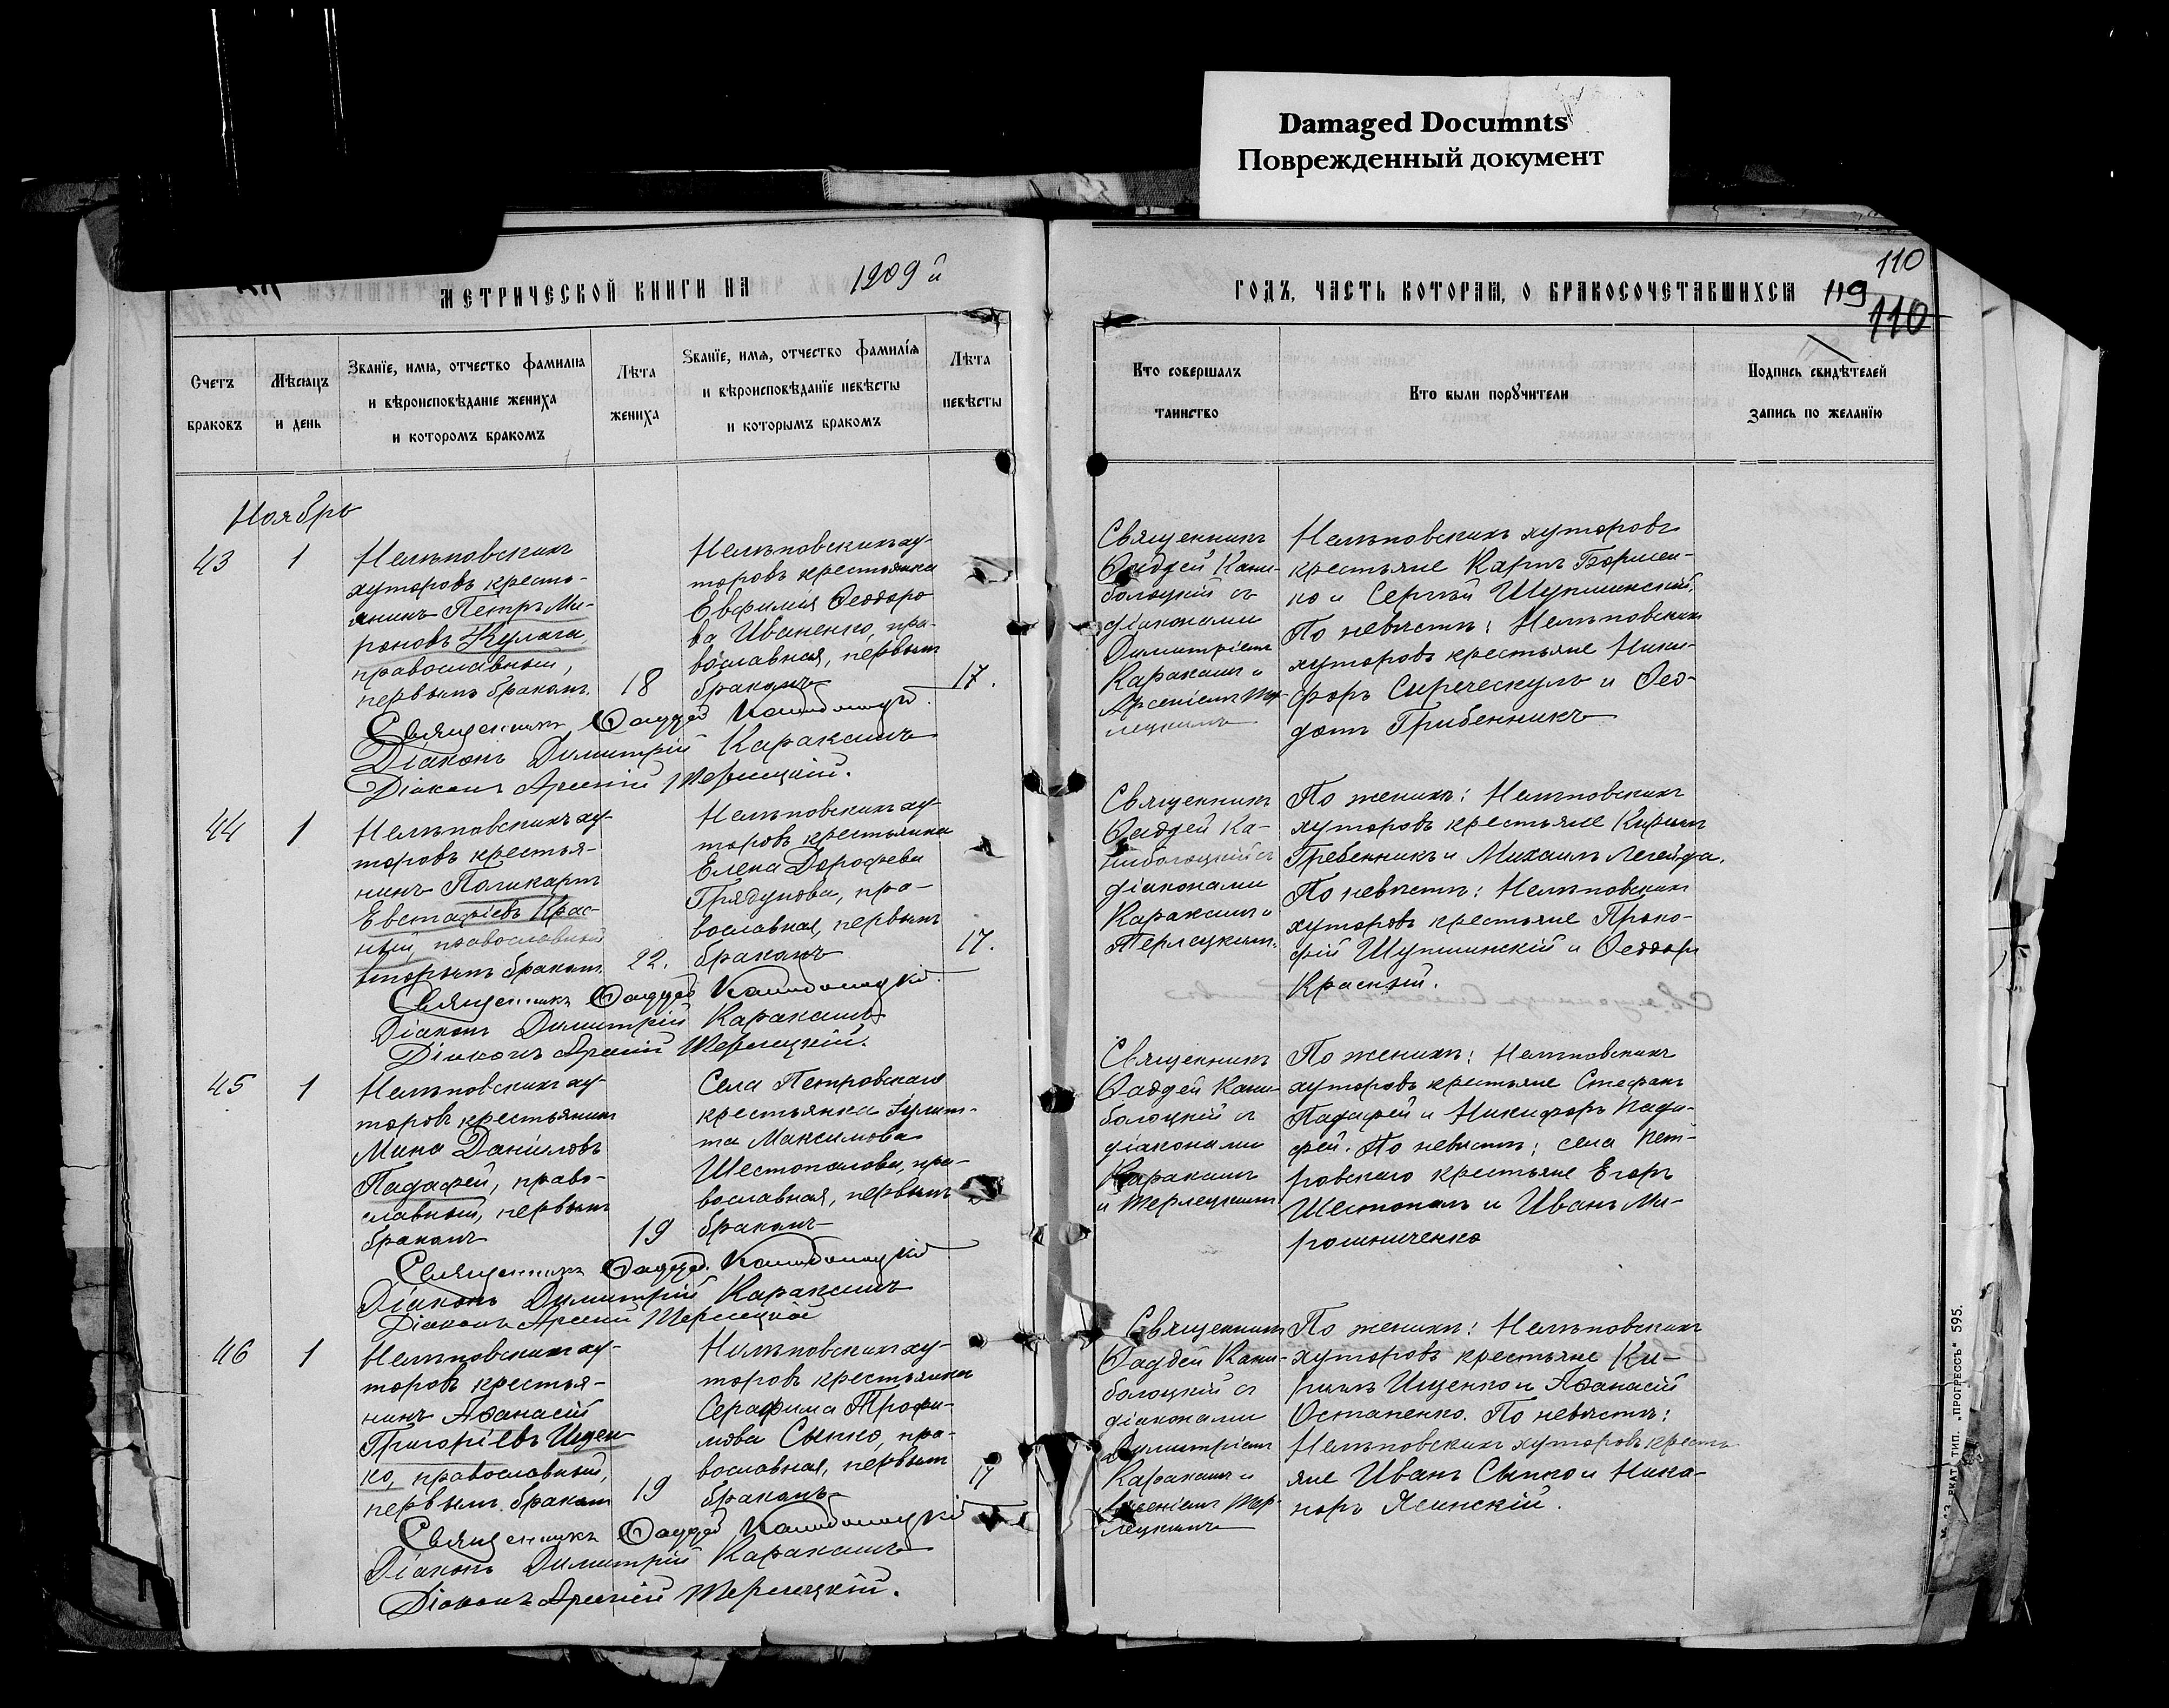 Damaged Documnts
Поврежденный документ
МЕТРИЧЕСКОЙ КНИГИ НА 1909 й
ГОДЪ, ЧАСТЬ ВТОРАЯ, О БРАКОСОЧЕТАВШИХСЯ
110
119
110
Счетъ браковъ
Мѣсяцъ и день
Званїе, имя, отчество фамилия
и вѣроисповѣданїе жениха
и котором бракомъ
Лѣта жениха
Званїе, имя, отчество фамилїя
и вѣроисповѣданїе невѣсты
и которымъ бракомъ
Лѣта невѣсты
Кто совершалъ таинство
Кто были поручители
Подпись свидѣтелей
запись по желанїю
Ноябрь
43
1
хуторовъ кресть-
янинъ Петръ Ми-
роновъ Кулага
православный,
первымъ бракомъ.
18
торовъ крестьянка
Евфимія Ѳеодоро
ва Иваненко, пра-
вославная, первым
бракомъ
17.
Священникъ
Ѳаддей Кани-
болоцкій съ
діаконами
Димитріемъ
Каракаш и
Арсеніемъ Тер-
лецкимъ
хуторовъ
крестьяне Карпъ Борисен-
ко и Сергѣй
По невѣстѣ:
хуторовъ крестьяне Ники-
форъ и Ѳео-
дотъ Грибенникъ
Священникъ Ѳаддей Каниболоцкій
Діаконъ Димитрій Каракашъ
Діаконъ Арсеній Терлецкій.
44
1
торовъ крестья-
нинъ Поликарпъ
Евстафіевъ Крас-
ный, православный
вторымъ бракомъ
22.
торовъ крестьянка
Елена Дорофѣева
Грядунова, пра-
вославная, первымъ
бракомъ
17.
Священникъ
Ѳаддей Ка-
ниболоцкій съ
діаконами
Каракашъ и
Терлецкимъ.
По женихѣ:
хуторовъ крестьяне Кириллъ
Гребенникъ и Михаилъ Легейда.
По невѣстѣ:
хуторовъ крестьяне Проко-
фій и Ѳеодоръ
Красный.
Священникъ Ѳаддей Каниболоцкій
Діаконъ Димитрій Каракашъ
Діаконъ Арсеній Терлецкій.
45
1
торовъ крестьянинъ
Мина Даніиловъ
Падафей, право-
славный, первымъ
бракомъ
19
Села Петровскаго
крестьянка Іулит-
та Максимова
Шестопалова, пра-
вославная, первымъ
бракомъ
Священникъ
Ѳаддей Кани-
болоцкій съ
діаконами
Каракашъ
и Терлецкимъ
По женихѣ:
хуторовъ крестьяне Стефанъ
Падафей и Никифоръ Пада-
фей. По невѣстѣ: села Пет-
ровскаго крестьяне Егоръ
Шестопалъ и Иванъ Ми-
рошниченко
Священникъ Ѳаддей Каниболоцкій
Діаконъ Димитрій Каракашъ
Діаконъ Арсеній Терлецкій
46
1
торовъ крестья-
нинъ Аѳанасій
Григоріевъ Ищен
ко, православный,
первымъ бракомъ
19
торовъ крестьянка
Серафима Трофи-
мова Сыпко, пра-
вославная, первымъ
бракомъ
17
Священникъ
Ѳаддей Кани-
болоцкій съ
діаконами
Димитріемъ
Каракашъ и
Арсеніемъ Тер-
лецкимъ
По женихѣ:
хуторовъ крестьяне Ки-
риллъ Ищенко и Аѳанасій
Остапенко. По невѣстѣ:
хуторовъ кресть
яне Иванъ Сыпко и Ника-
норъ Ясинскій.
Священникъ Ѳаддей Каниболоцкій
Діаконъ Димитрій Каракашъ
Діаконъ Арсеній Терлецкій.
ЕКАТ. ТИП. „ПРОГРЕССЪ" 595.